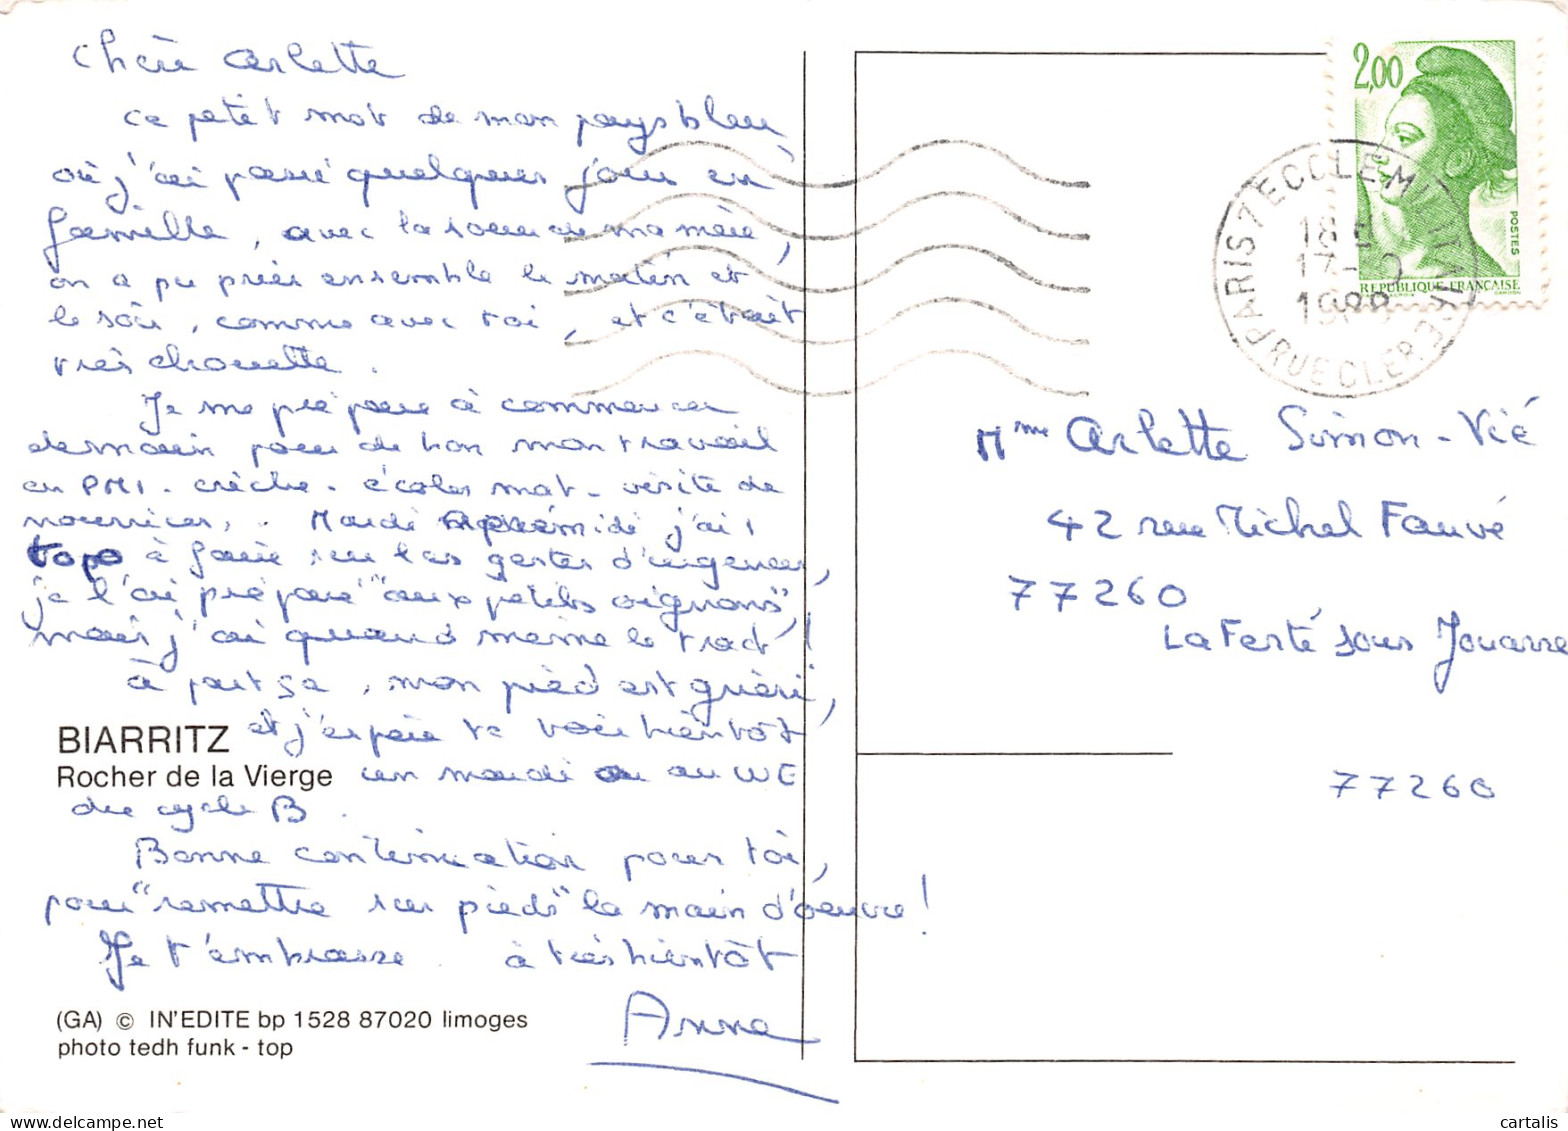 Chère Arlette
ce petit mot de mon pays bleu
où j'ai passé quelques jours en
famille, avec la soeur de ma mère,
on a pu prier ensemble le matin et
le soir, comme avec toi, et c'était
très chouette.
Je me prépare à commencer
demain pour de bon mon travail
en PMI - crèche - écoles mat - visite de
nourrices, . Mardi après midi j'ai 1
topo à faire sur les gestes d'urgences,
je l'ai préparé "aux petits oignons",
mais j'ai quand même le tract !
à part ça, mon pied est guéri,
et j'espère te voir bientôt
BIARRITZ
Rocher de la Vierge
un mardi ou au WE
du cycle B.
Bonne continuation pour toi,
pour "remettre sur pieds" la main d'oeuvre !
Je t'embrasse. à très bientôt
Anne
(GA) © IN'EDITE bp 1528 87020 limoges
photo tedh funk - top
2,00
POSTES
REPUBLIQUE FRANÇAISE
PARIS 7 ECOLE MILITAIRE
18 H
17-9
1988
RUE CLER
Mme Arlette Simon-Vié
42 rue Michel Fauvé
77260
La Ferté sous Jouarre
77260
cartalis